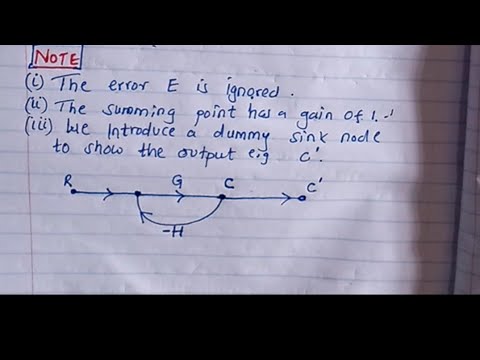 NOTE
(i) The error E is ignored.
(ii) The summing point has a gain of 1.
(iii) We Introduce a dummy sink node
to show the output eig C'.
R G C C'
-H